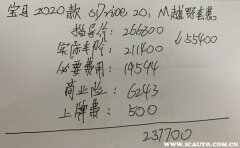 宝马 2020款 sDrive 20i M越野套装
指导价: 266800
↓55400
实际车价: 211400
必要费用: 19544
商业险: 6243
上牌费: 500
237700
WWW.5CAUTO.COM.CN